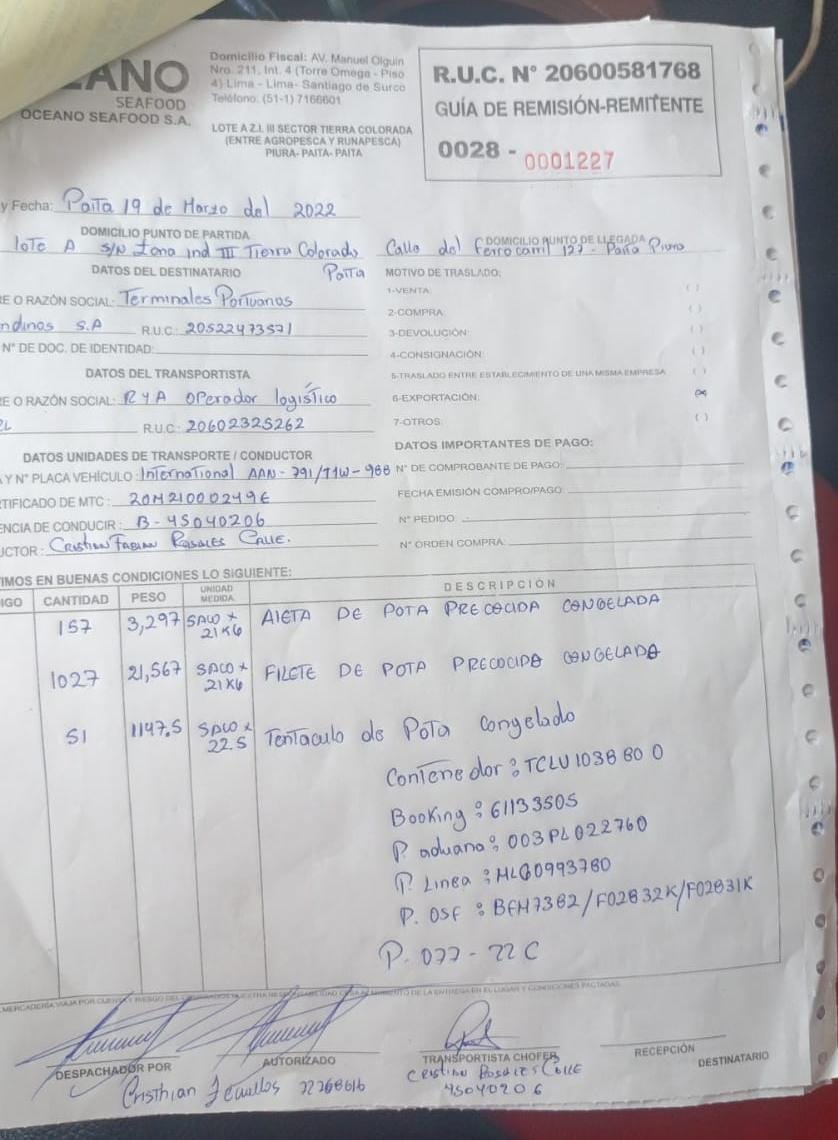 EANO
SEAFOOD
OCEANO SEAFOOD S.A.
Domicilio Fiscal: AV. Manuel Olguin
Nro. 211, Int. 4 (Torre Omega - Piso
4) Lima - Lima- Santiago de Surco
Teléfono. (51-1) 7166601
LOTE A Z.I. III SECTOR TIERRA COLORADA
(ENTRE AGROPESCA Y RUNAPESCA)
PIURA- PAITA- PAITA
R.U.C. N° 20600581768
GUÍA DE REMISIÓN-REMITENTE
0028 - 0001227
y Fecha: Paita 19 de Marzo del 2022
DOMICILIO PUNTO DE PARTIDA
lote A S/N Zona ind III Tierra Colorado Paita
DOMICILIO PUNTO DE LLEGADA
Calle del Ferrocarril 127 - Paita Piura
DATOS DEL DESTINATARIO
RE O RAZÓN SOCIAL: Terminales Portuarios
ndinos S.A R.U.C.: 20522473571
N° DE DOC. DE IDENTIDAD:
DATOS DEL TRANSPORTISTA
RE O RAZÓN SOCIAL: R Y A Operador logístico
R.U.C: 20602325262
DATOS UNIDADES DE TRANSPORTE / CONDUCTOR
A Y N° PLACA VEHÍCULO: International AAN-791/T1W-988
RTIFICADO DE MTC: 20M21000249E
ENCIA DE CONDUCIR: B-45040206
UCTOR: Cristian Fabian Rosales Calle.
MOTIVO DE TRASLADO:
1-VENTA: ( )
2-COMPRA: ( )
3-DEVOLUCIÓN: ( )
4-CONSIGNACIÓN ( )
5-TRASLADO ENTRE ESTABLECIMIENTO DE UNA MISMA EMPRESA ( )
6-EXPORTACIÓN: (x)
7-OTROS: ( )
DATOS IMPORTANTES DE PAGO:
N° DE COMPROBANTE DE PAGO:
FECHA EMISIÓN COMPRO/PAGO:
N° PEDIDO:
N° ORDEN COMPRA:
TIMOS EN BUENAS CONDICIONES LO SIGUIENTE:
IGO CANTIDAD PESO UNIDAD MEDIDA DESCRIPCIÓN
157 3,297 SACO x 21K6 ALETA DE POTA PRECOCIDA CONGELADA
1027 21,567 SACO x 21K6 FILETE DE POTA PRECOCIDA CONGELADA
51 1147.5 SACO x 22.5 Tentaculo de Pota congelado
Contenedor: TCLU 1038 80 0
Booking: 61133505
P. aduana: 003PL022760
P. Linea: MLG0993780
P. OSE: BFH7382/F02832K/F02831K
P. 077-22C
MERCADERÍA VIAJA POR CUENTA Y RIESGO DEL DE LA ENTREGA EN EL LUGAR Y CONDICIONES PACTADAS.
DESPACHADOR POR
AUTORIZADO
TRANSPORTISTA CHOFER
RECEPCIÓN
DESTINATARIO
Cristhian Zevallos
Cristian Rosales Calle
45040206